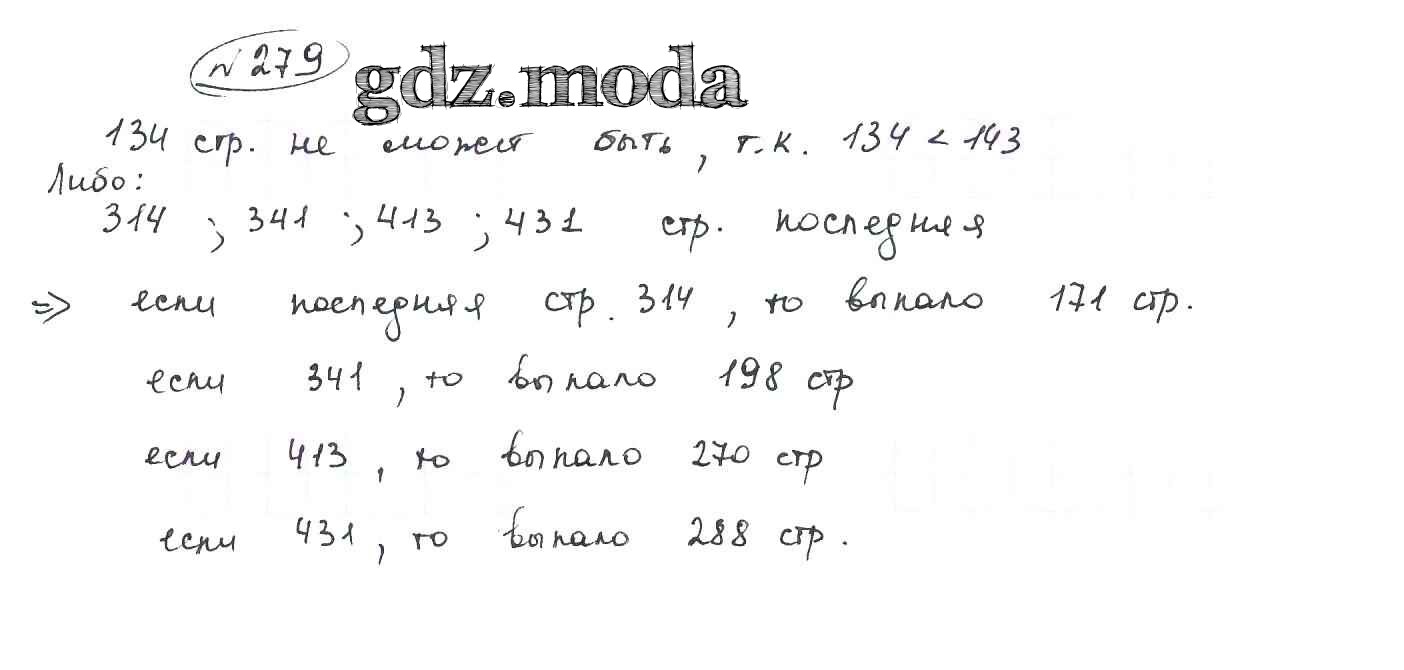 № 279 gdz.moda
134 стр. не может быть, т.к. 134 < 143
Либо:
314 ; 341 ; 413 ; 431 стр. последняя
=> если последняя стр. 314, то выпало 171 стр.
если 341, то выпало 198 стр
если 413, то выпало 270 стр
если 431, то выпало 288 стр.